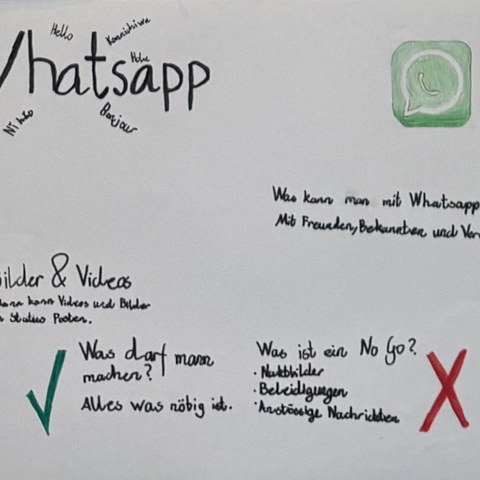 Hello
Konnichiwa
Whatsapp
Ni hao
Bonjour
Was kann man mit Whatsapp
Mit Freunden, Bekannten und Ver
Bilder & Videos
Mann kann Videos und Bilder
Status Posten.
Was darf mann
machen?
Alles was nötig ist.
Was ist ein No Go?
· Nacktbilder
· Beleidigungen
· Anstössige Nachrichten